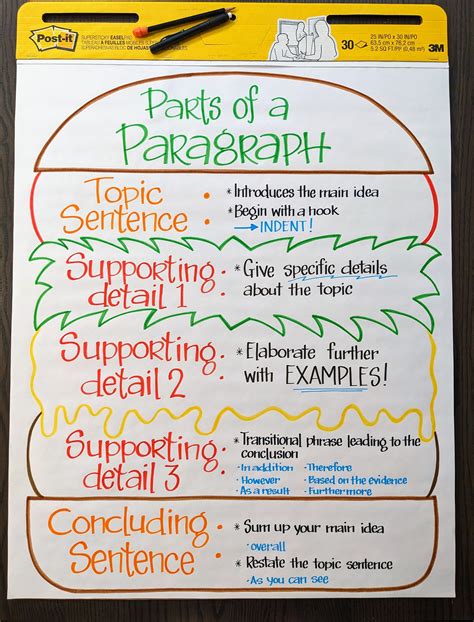 Post-it
SUPERSTICKY EASEL PAD
30
25 IN/PO x 30 IN/PO
63,5 cm x 76,2 cm
5.2 SQ FT/PI² (0,48 m²)
3M
Parts of a
Paragraph
Topic
Sentence:
*Introduces the main idea
*Begin with a hook
→INDENT!
Supporting
detail 1
:
*Give specific details
about the topic
Supporting
detail 2
:
*Elaborate further
with EXAMPLES!
Supporting
detail 3
:
*Transitional phrase leading to the
conclusion
•In addition •Therefore
•However •Based on the evidence
•As a result •Furthermore
Concluding
Sentence
:
*Sum up your main idea
•overall
*Restate the topic sentence
•As you can see